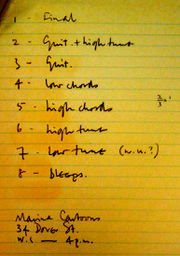 1 - Final
2 - Guit. + high tune
3 - Guit.
4 - low chords
5 - high chords
6 - high tune
7 - low tune (w.w.?)
8 - bleeps.
Marina Cartoons
34 Dover St.
W.1. — 4 p.m.